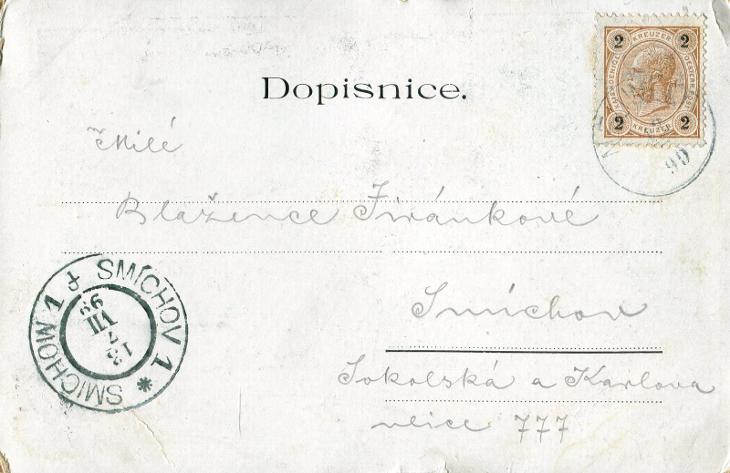 2 KREUZER 2
2 KREUZER 2
99
Dopisnice.
Milé
Blažence Jiránkové
Smíchov
Sokolská a Karlova
ulice 777
SMÍCHOV 1
SMICHOV 1
12 7
VII
99